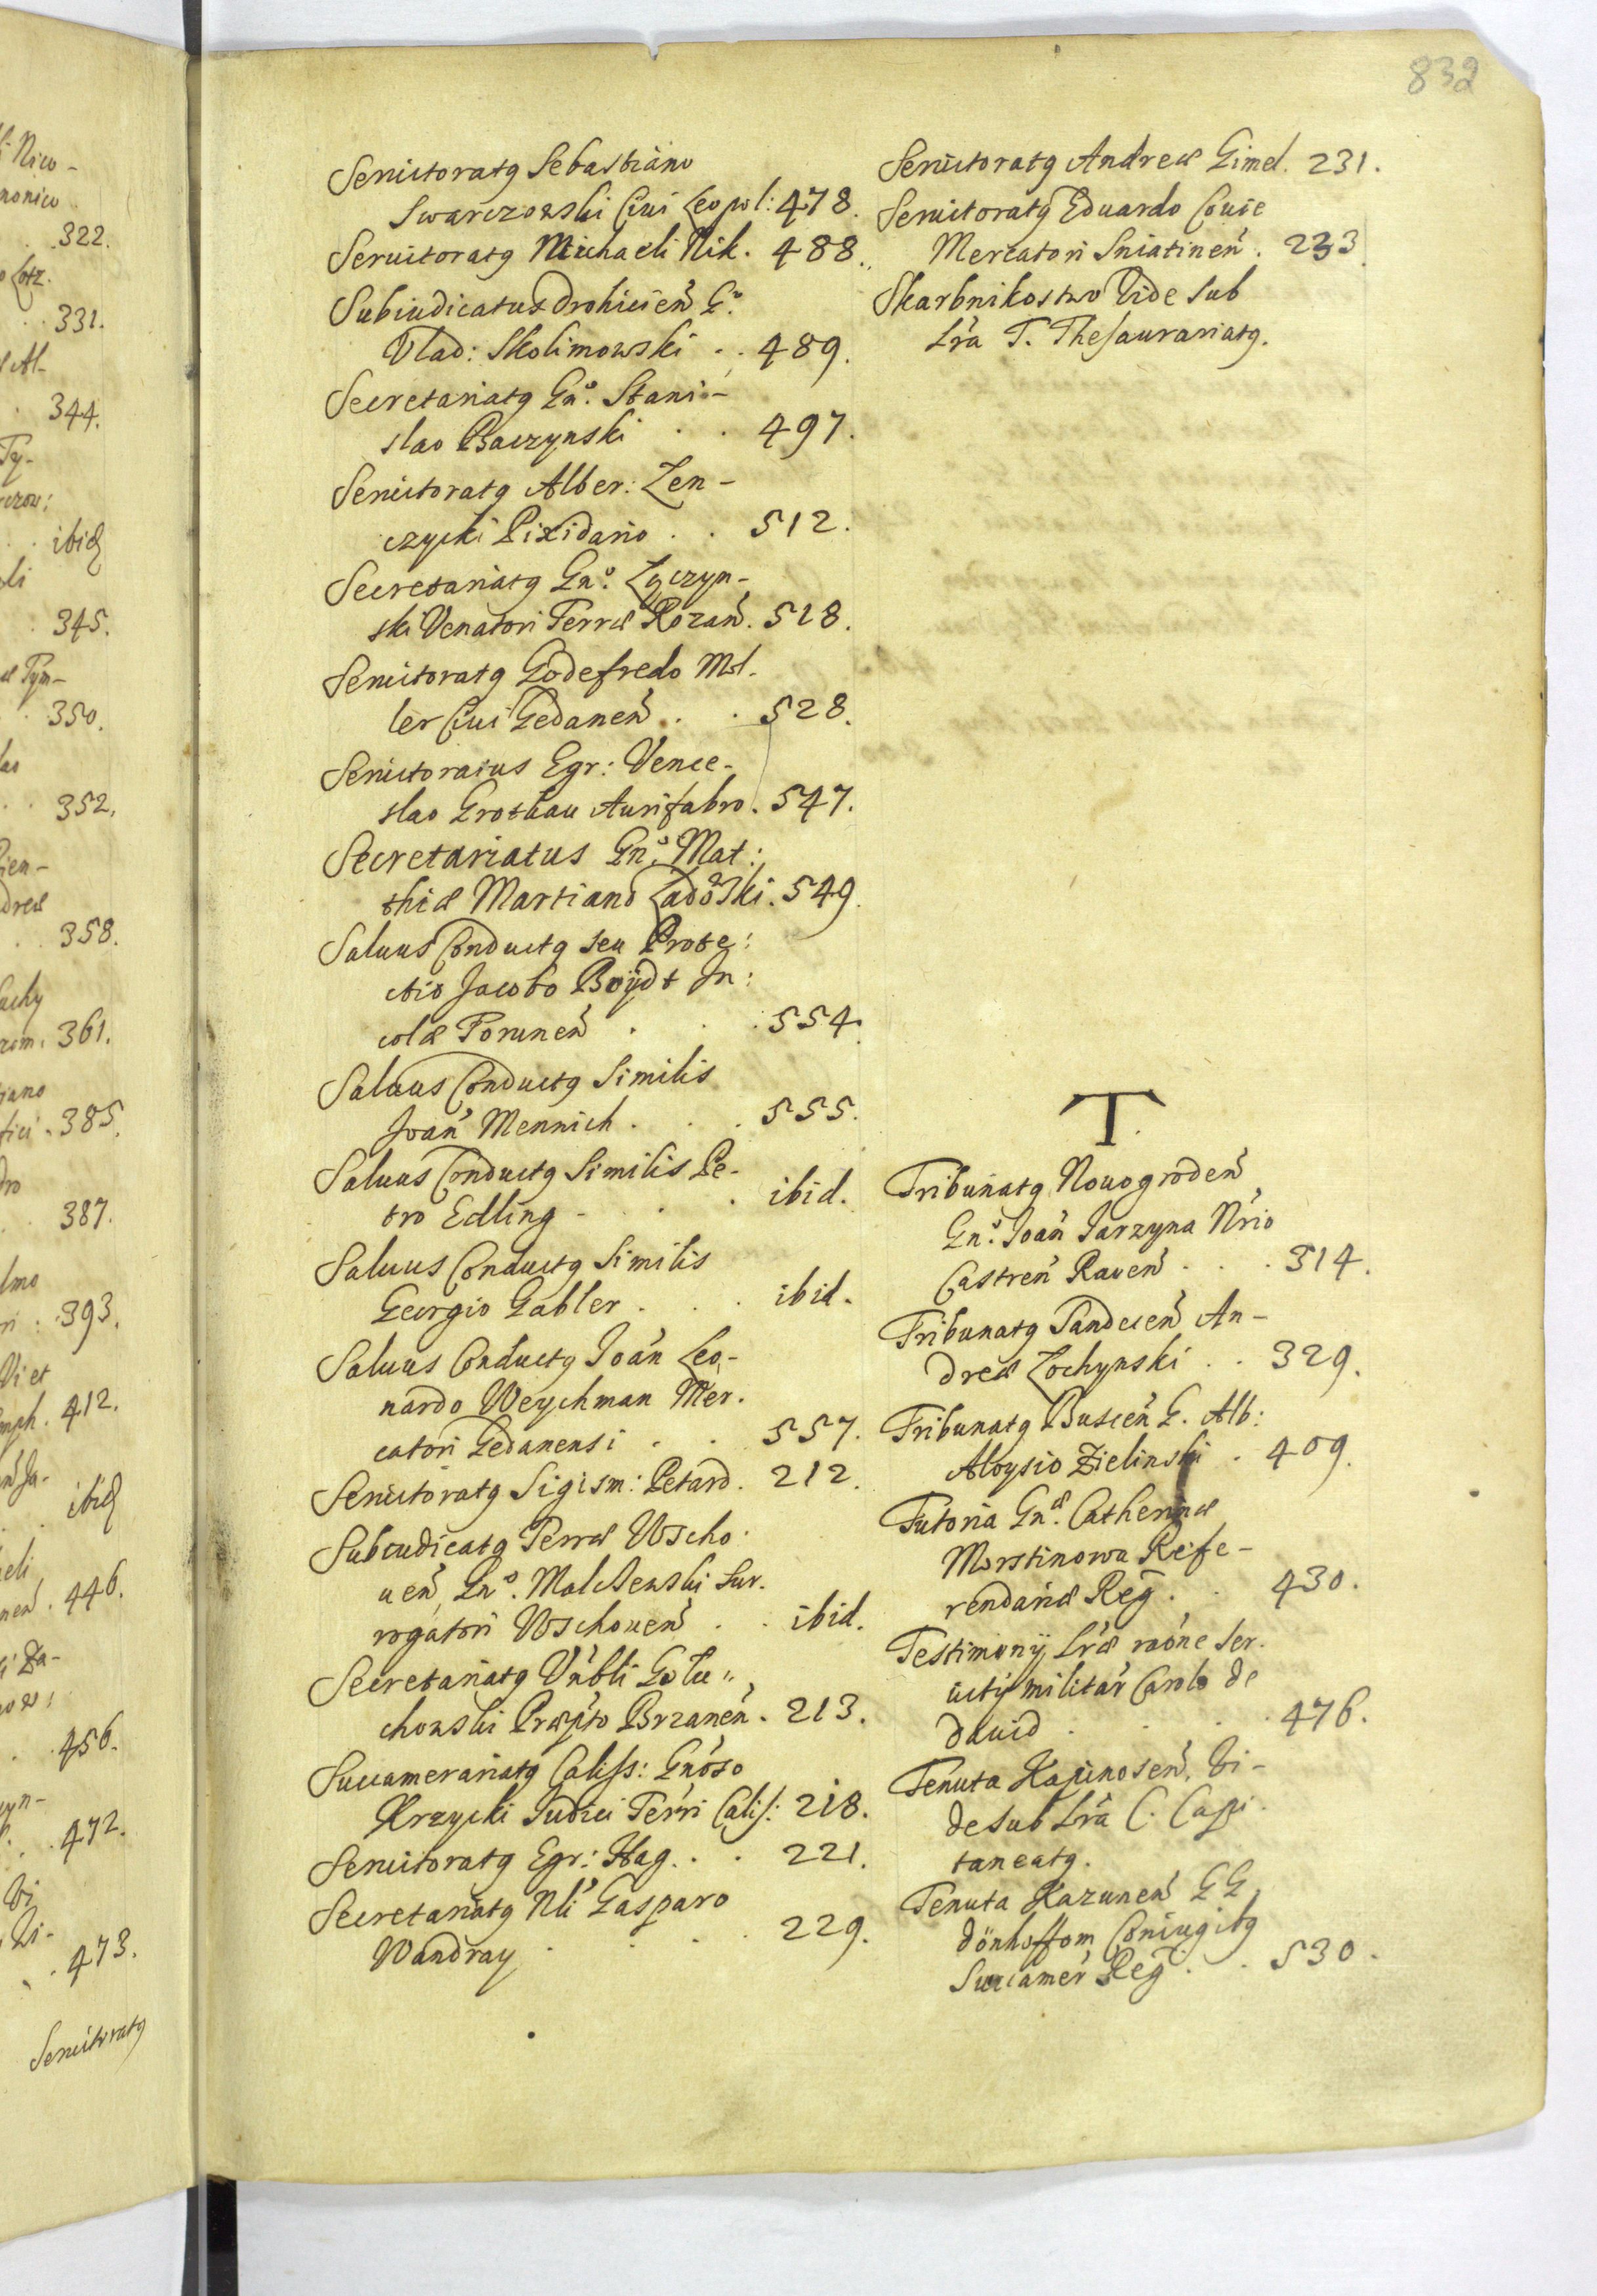 832
Seruitoratg Sebastiano
Swarczowski Ciui Leopol: 478.
Seruitoratg Michaeli Nik. 488.
Subiudicatus Drohicień G.º
Vlad: Skolimowski . . 489.
Secretariatg Gn.º Stani-
slao Baczynski . . 497.
Seruitoratg Alber: Zen-
czycki Pixidario . . 512.
Secretariatg Gn.º Zyczyn-
ski Venatori Terræ Rozań. 518.
Seruitoratg Godefredo Mel-
ler Ciui Gedaneń . . 528.
Seruitoratus Egr: Vence-
slao Grothau Aurifabro . 547.
Secretariatus Gn.º Mat:
thiæ Martiano Ladoski . 549.
Saluus Conductg seu Prote:
ctio Jacobo Boydt In:
colæ Toruneń . . . 554.
Saluus Conductg Similis
Joań Mennich . . . 555.
Saluus Conductg Similis Pe-
tro Edling - . . . ibid.
Saluus Conductg Similis
Georgio Gabler . . . ibid.
Saluus Conductg Joań Leo-
nardo Weychman Mer-
catori Gedanensi . . 557.
Seruitoratg Sigism: Petard . 212.
Subiudicatg Terræ Wscho-
ueń, Gn.º Malchewski Sur-
rogatori Wschoueń . . ibid.
Secretariatg Vńbli Golu-
chowski Præpto Brzaneń . 213.
Succamerariatg Caliss: Gnóso
Krzycki Judici Terri Calis: 218.
Seruitoratg Egr: Hag. . . 221.
Secretariatg Nli Gasparo
Wandray . . . . 229.
Seruitoratg Andreæ Gimel. 231.
Seruitoratg Eduardo Couie
Mercatori Sniatineń . 233.
Skarbnikostwo Vide sub
Lrá T. Thesaurariatg.
T.
Tribunatg Nouogrodeń
Gn.º Joań Jarzyna Nrió
Castreń Raueń . . . 314.
Tribunatg Sandeceń An-
dreæ Zochynski . . 329.
Tribunatg Busceń G. Alb:
Aloysio Zielinski . 409.
Tutoria Gn.æ Catherinæ
Morstinowa Refe-
rendariæ Reg . . 430.
Testimonij Lræ raóne ser-
uitij militar Carolo de
Dauid . . . . 476.
Tenuta Kapinoseń, Vi-
de sub Lrá C. Capi-
taneatg.
Tenuta Kazuneń GG
Dönhoffom Coniugibg
Succamer Reg . . 530.
Seruitoratg
322.
331.
344.
ibid
345.
350.
352.
358.
361.
385.
387.
393.
412.
ibid
446.
456.
472.
473.